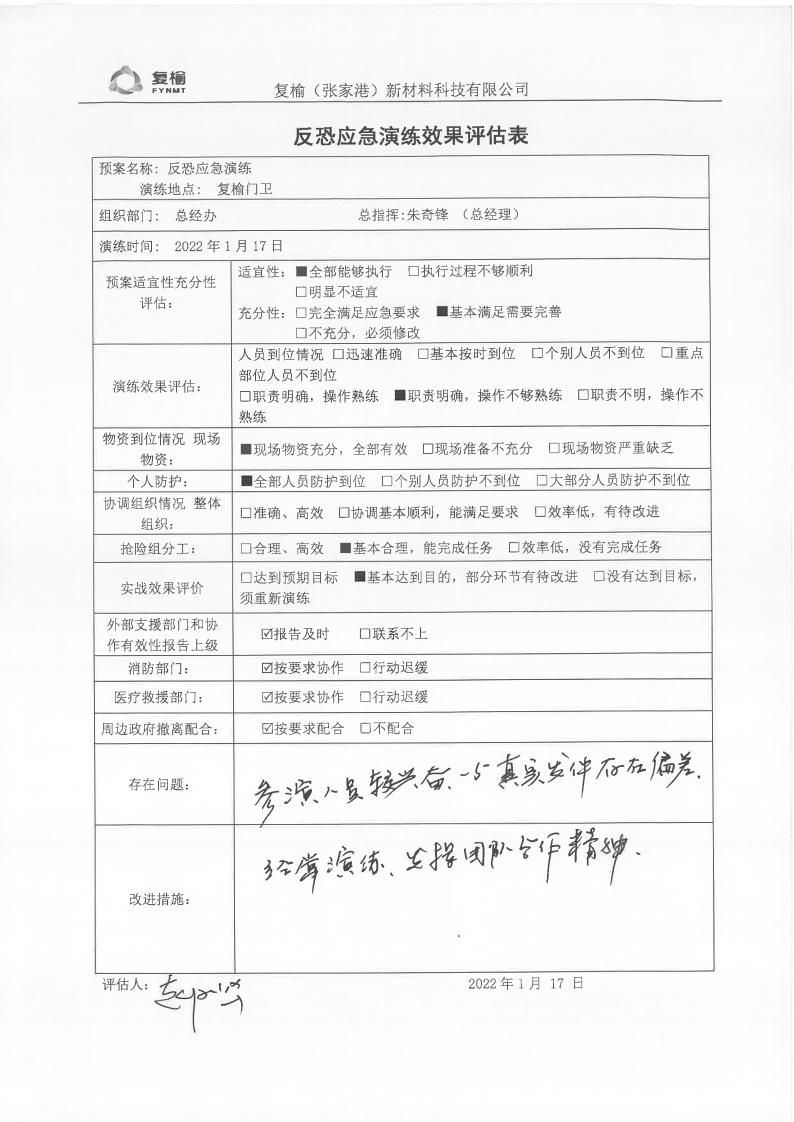 复榆
FYNMT
复榆（张家港）新材料科技有限公司
反恐应急演练效果评估表
预案名称：反恐应急演练
演练地点： 复榆门卫
组织部门： 总经办 总指挥:朱奇锋 （总经理）
演练时间： 2022 年 1 月 17 日
预案适宜性充分性
评估：
适宜性：■全部能够执行 □执行过程不够顺利
□明显不适宜
充分性：□完全满足应急要求 ■基本满足需要完善
□不充分，必须修改
演练效果评估：
人员到位情况 □迅速准确 □基本按时到位 □个别人员不到位 □重点
部位人员不到位
□职责明确，操作熟练 ■职责明确，操作不够熟练 □职责不明，操作不
熟练
物资到位情况 现场
物资：
■现场物资充分，全部有效 □现场准备不充分 □现场物资严重缺乏
个人防护： ■全部人员防护到位 □个别人员防护不到位 □大部分人员防护不到位
协调组织情况 整体
组织：
□准确、高效 □协调基本顺利，能满足要求 □效率低，有待改进
抢险组分工： □合理、高效 ■基本合理，能完成任务 □效率低，没有完成任务
实战效果评价
□达到预期目标 ■基本达到目的，部分环节有待改进 □没有达到目标，
须重新演练
外部支援部门和协
作有效性报告上级
☑报告及时 □联系不上
消防部门： ☑按要求协作 □行动迟缓
医疗救援部门： ☑按要求协作 □行动迟缓
周边政府撤离配合： ☑按要求配合 □不配合
存在问题： 参演人员较兴奋、与真实发件存在偏差.
改进措施： 经常演练、发挥团队合作精神.
评估人： 2022 年 1 月 17 日